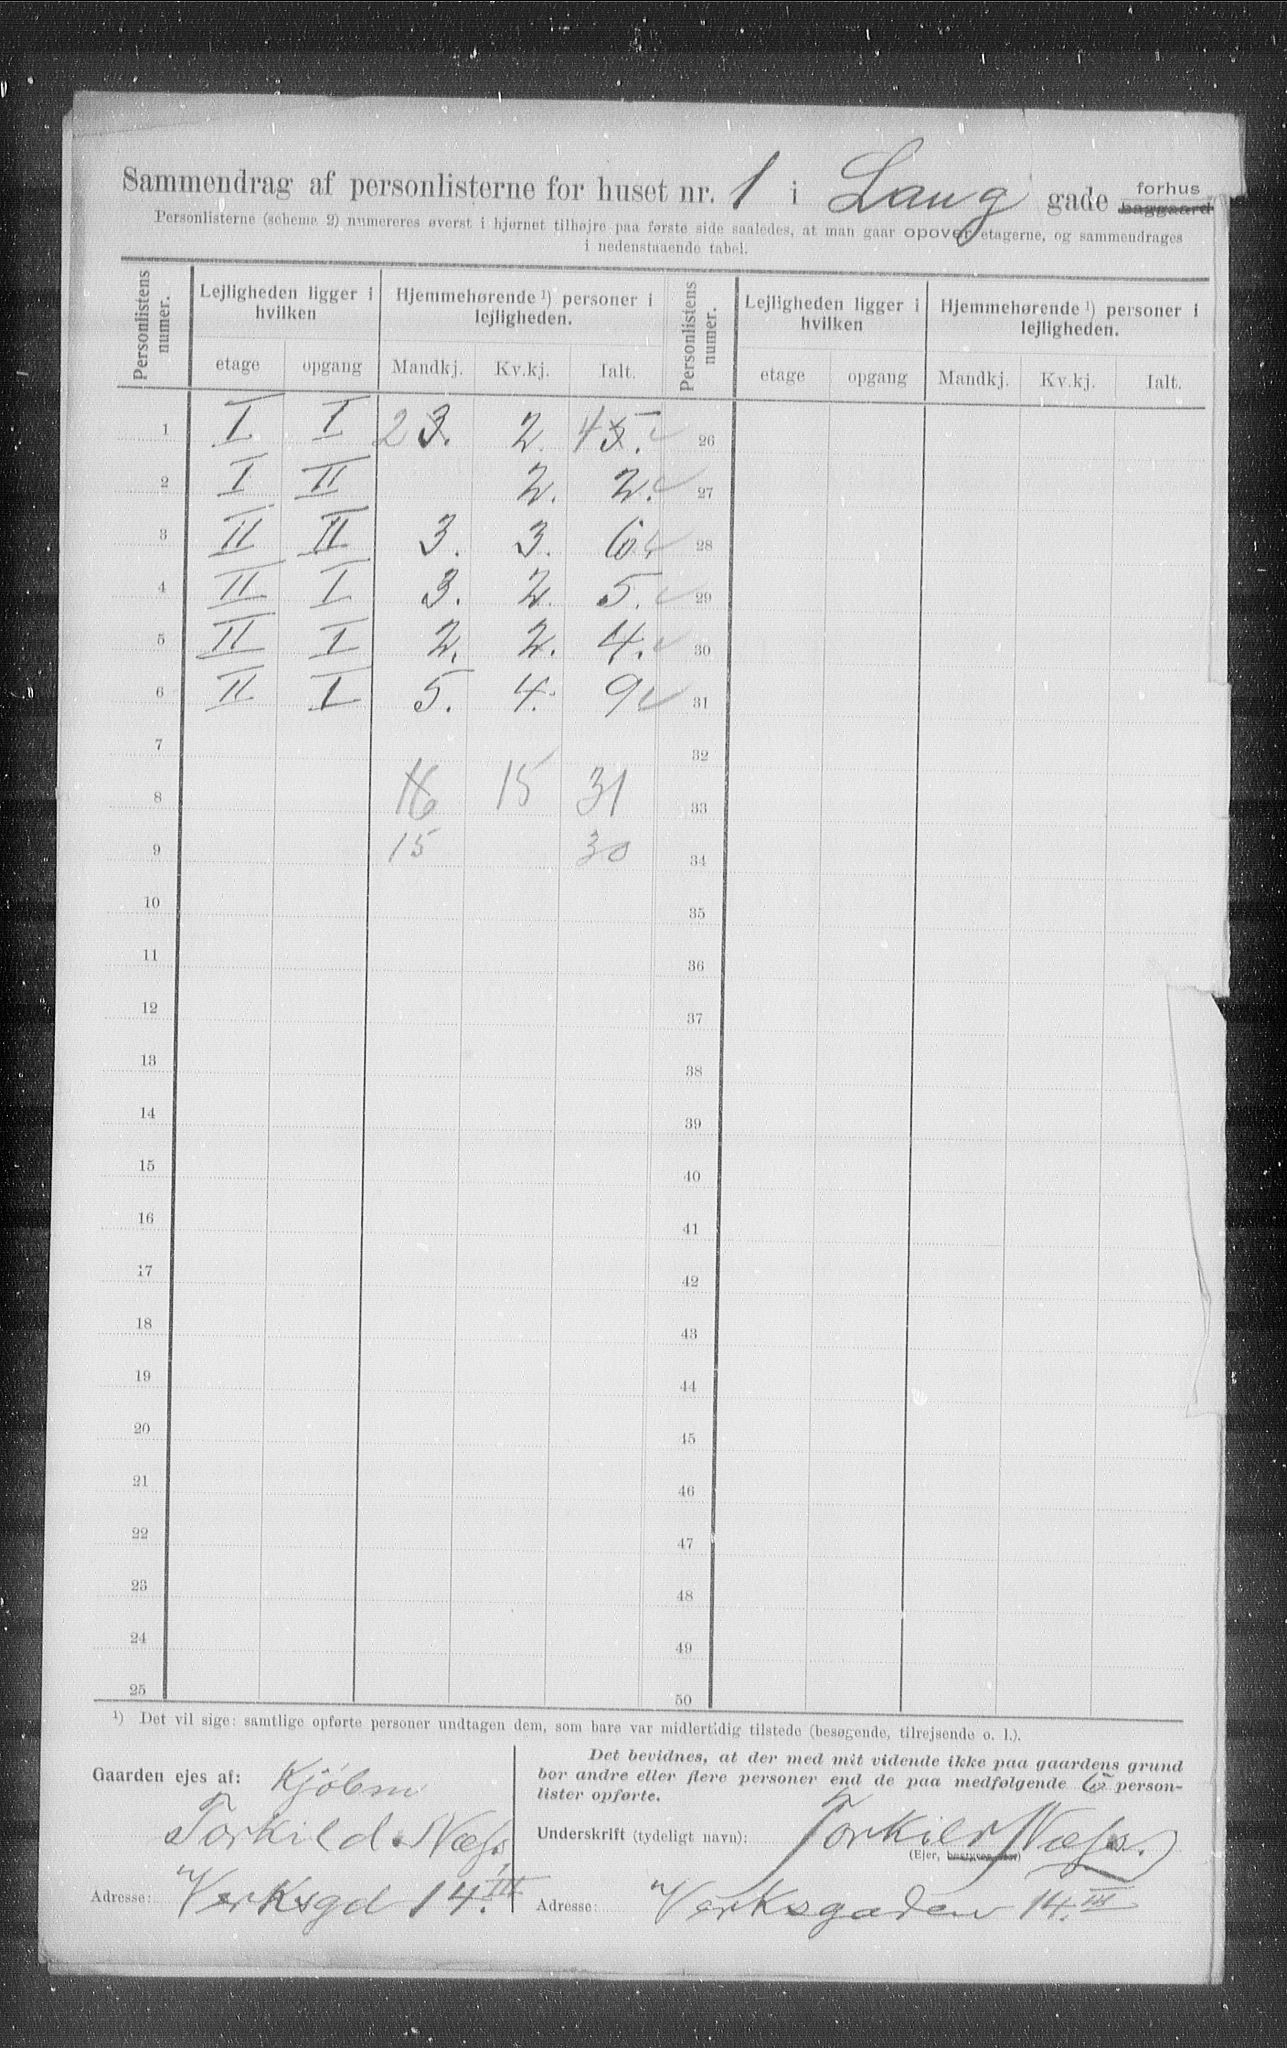 Sammendrag af personlisterne for huset nr. 1 i Lang gade forhus baggaard
Personlisterne (scheme 2) numereres øverst i hjørnet tilhøjre paa første side saaledes, at man gaar opover etagerne, og sammendrages
i nedenstaaende tabel.
Personlistens numer. Lejligheden ligger i hvilken Hjemmehørende ¹) personer i lejligheden. Personlistens numer. Lejligheden ligger i hvilken Hjemmehørende ¹) personer i lejligheden.
etage opgang Mandkj. Kv.kj. Ialt. etage opgang Mandkj. Kv.kj. Ialt.
1 I I 2 3. 2. 4 5. 26
2 I II 2. 2. 27
3 II II 3. 3. 6. 28
4 II I 3. 2. 5. 29
5 II I 2. 2. 4. 30
6 II I 5. 4. 9 31
7 32
8 16 15 31 33
9 15 30 34
10 35
11 36
12 37
13 38
14 39
15 40
16 41
17 42
18 43
19 44
20 45
21 46
22 47
23 48
24 49
25 50
¹) Det vil sige: samtlige opførte personer undtagen dem, som bare var midlertidig tilstede (besøgende, tilrejsende o. l.).
Gaarden ejes af: Kjøbm
Torkild Næss.
Adresse: Verksgd 14. III
Det bevidnes, at der med mit vidende ikke paa gaardens grund
bor andre eller flere personer end de paa medfølgende 6 person-
lister opførte.
Underskrift (tydeligt navn): Torkild Næss.
(Ejer, bestyrer etc.)
Adresse: Verksgaden 14. III